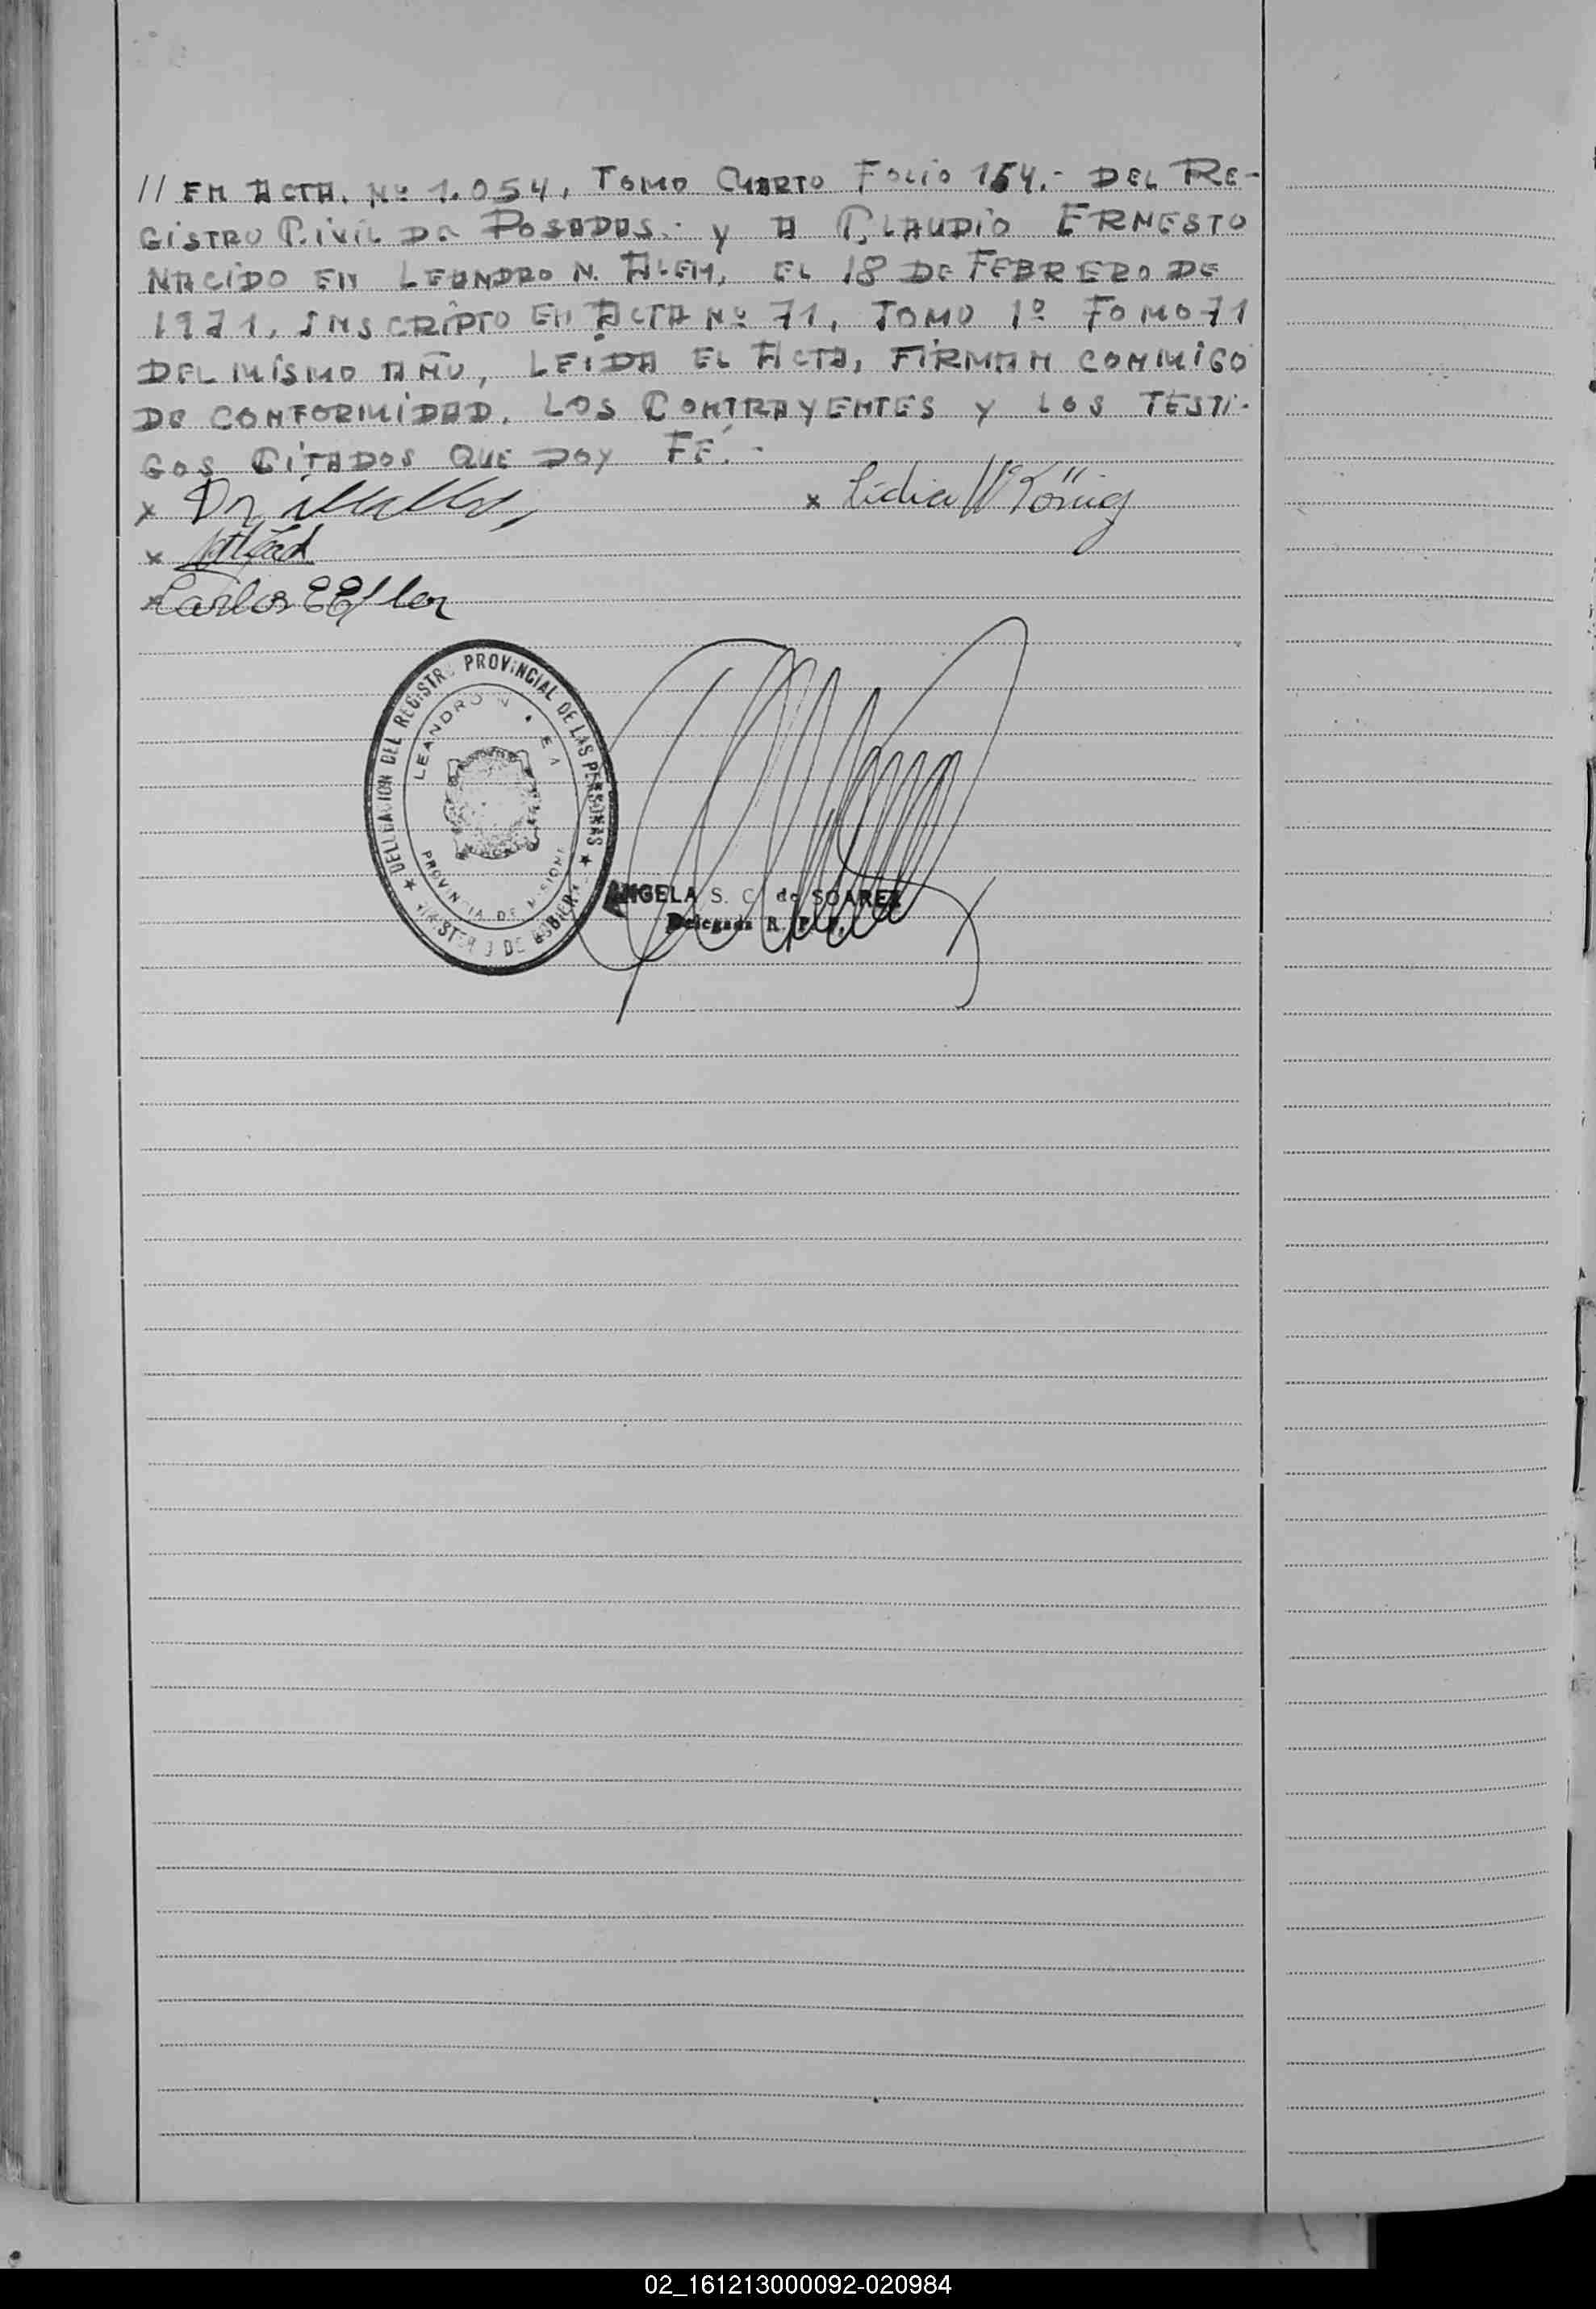 // EN ACTA. Nº 1.054, TOMO CUARTO FOLIO 154.- DEL RE-
GISTRO CIVIL DE POSADAS.- y A CLAUDIO ERNESTO
NACIDO EN LEANDRO N. ALEM, EL 18 DE FEBRERO DE
1971, INSCRIPTO EN ACTA Nº 71, TOMO 1º FOMO 71
DEL MISMO AÑO, LEIDA EL ACTA, FIRMAN CONMIGO
DE CONFORMIDAD, LOS CONTRAYENTES y LOS TESTI-
GOS CITADOS QUE DOY FÉ.-
x
x Lidia W König
x
x Carlos
DELEGACION DEL REGISTRO PROVINCIAL DE LAS PERSONAS
LEANDRO N
PROVINCIA DE MISIONES
MINISTERIO DE GOBIERNO
ANGELA S. C. de SOAREZ
Delegada R. P. P.
02_161213000092-020984